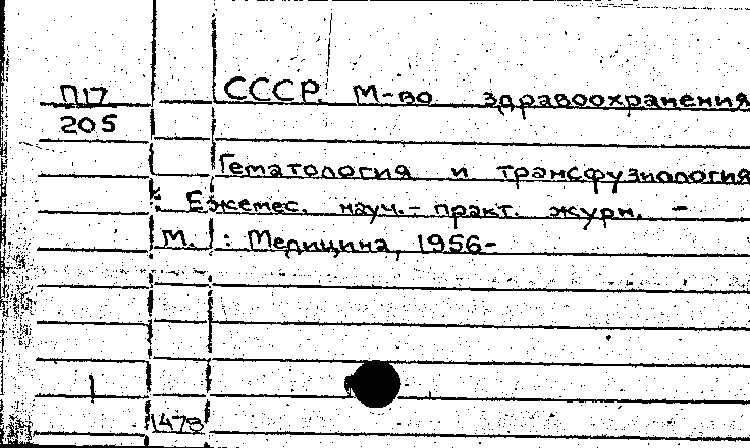 П17 СССР. М-во здравоохранения
205
Гематология и трансфузиология
: Ежемес. науч.-практ. журн. -
М. : Медицина, 1956-
1
1478